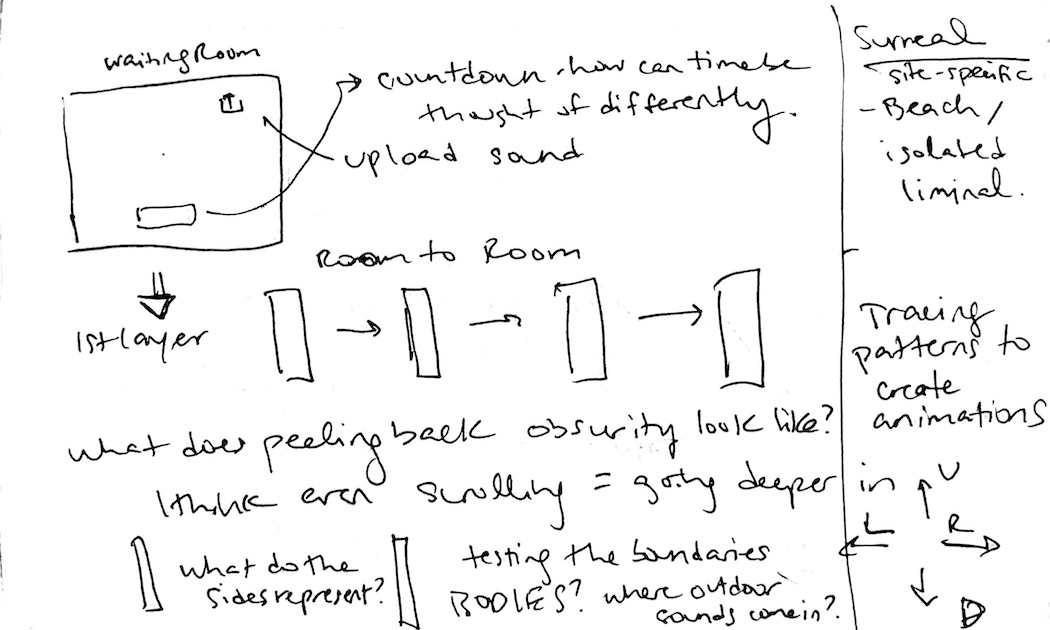 waitingRoom
countdown - how can time be
thought of differently.
upload sound
Room to Room
1st layer
what does peeling back obsurity look like?
I think even scrolling = going deeper in
what do the
sides represent?
testing the bondaries
BODIES? where outdoor
sounds come in?
Surreal
site-specific
- Beach /
isolated
liminal.
Tracing
patterns to
create
animations
U
L R
D